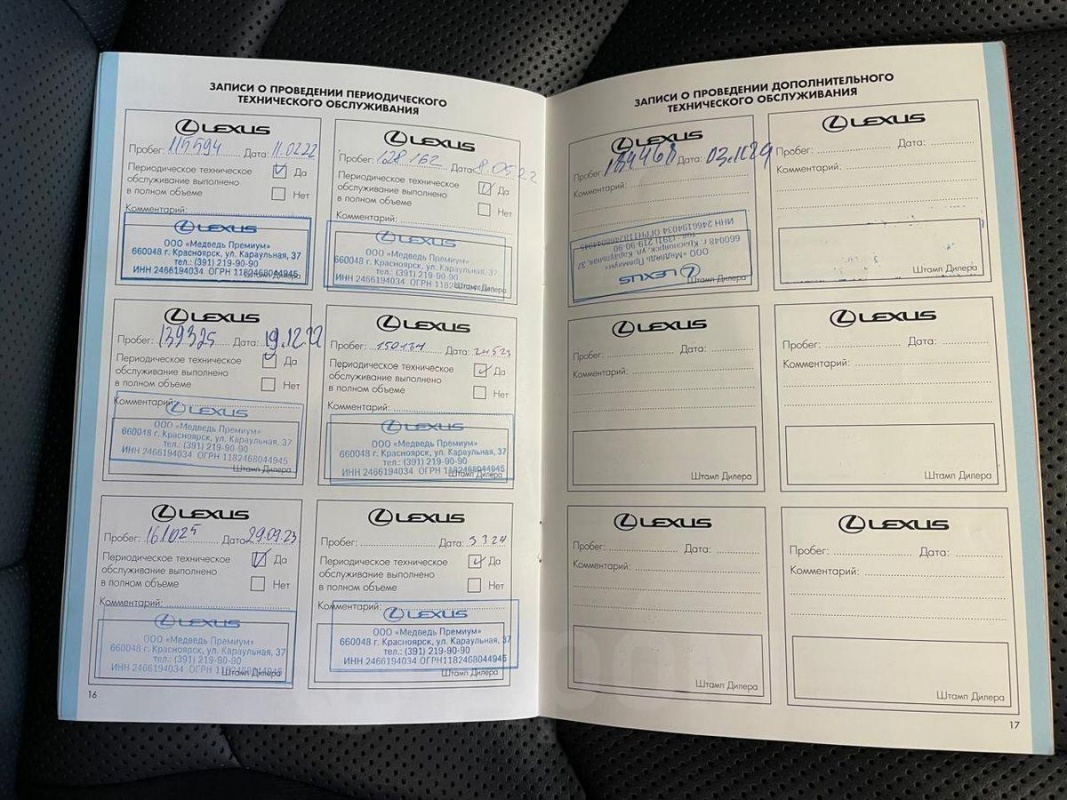 ЗАПИСИ О ПРОВЕДЕНИИ ПЕРИОДИЧЕСКОГО
ТЕХНИЧЕСКОГО ОБСЛУЖИВАНИЯ
LEXUS
Пробег: 115594 Дата: 11.02.22
Периодическое техническое
обслуживание выполнено
в полном объеме
Да
Нет
Комментарий:
LEXUS
ООО «Медведь Премиум»
660048 г. Красноярск, ул. Караульная, 37
тел.: (391) 219-90-90
ИНН 2466194034 ОГРН 1182468044945
Штамп Дилера
LEXUS
Пробег: 128162 Дата: 8.05.22
Периодическое техническое
обслуживание выполнено
в полном объеме
Да
Нет
Комментарий:
LEXUS
ООО «Медведь Премиум»
660048 г. Красноярск, ул. Караульная, 37
тел.: (391) 219-90-90
ИНН 2466194034 ОГРН 1182468044945
Штамп Дилера
LEXUS
Пробег: 139325 Дата: 19.12.22
Периодическое техническое
обслуживание выполнено
в полном объеме
Да
Нет
Комментарий:
LEXUS
ООО «Медведь Премиум»
660048 г. Красноярск, ул. Караульная, 37
тел.: (391) 219-90-90
ИНН 2466194034 ОГРН 1182468044945
Штамп Дилера
LEXUS
Пробег: Дата: 24.5.23
Периодическое техническое
обслуживание выполнено
в полном объеме
Да
Нет
Комментарий:
LEXUS
ООО «Медведь Премиум»
660048 г. Красноярск, ул. Караульная, 37
тел.: (391) 219-90-90
ИНН 2466194034 ОГРН 1182468044945
Штамп Дилера
LEXUS
Пробег: 161025 Дата: 29.09.23
Периодическое техническое
обслуживание выполнено
в полном объеме
Да
Нет
Комментарий:
LEXUS
ООО «Медведь Премиум»
660048 г. Красноярск, ул. Караульная, 37
тел.: (391) 219-90-90
ИНН 2466194034 ОГРН 1182468044945
Штамп Дилера
LEXUS
Пробег: Дата: 3.3.24
Периодическое техническое
обслуживание выполнено
в полном объеме
Да
Нет
Комментарий:
LEXUS
ООО «Медведь Премиум»
660048 г. Красноярск, ул. Караульная, 37
тел.: (391) 219-90-90
ИНН 2466194034 ОГРН 1182468044945
Штамп Дилера
16
ЗАПИСИ О ПРОВЕДЕНИИ ДОПОЛНИТЕЛЬНОГО
ТЕХНИЧЕСКОГО ОБСЛУЖИВАНИЯ
LEXUS
Пробег: 134468 Дата:
Комментарий:
LEXUS
ООО «Медведь Премиум»
660048 г. Красноярск, ул. Караульная, 37
тел.: (391) 219-90-90
ИНН 2466194034 ОГРН 1182468044945
Штамп Дилера
LEXUS
Пробег: Дата:
Комментарий:
Штамп Дилера
LEXUS
Пробег: Дата:
Комментарий:
Штамп Дилера
LEXUS
Пробег: Дата:
Комментарий:
Штамп Дилера
LEXUS
Пробег: Дата:
Комментарий:
Штамп Дилера
LEXUS
Пробег: Дата:
Комментарий:
Штамп Дилера
17